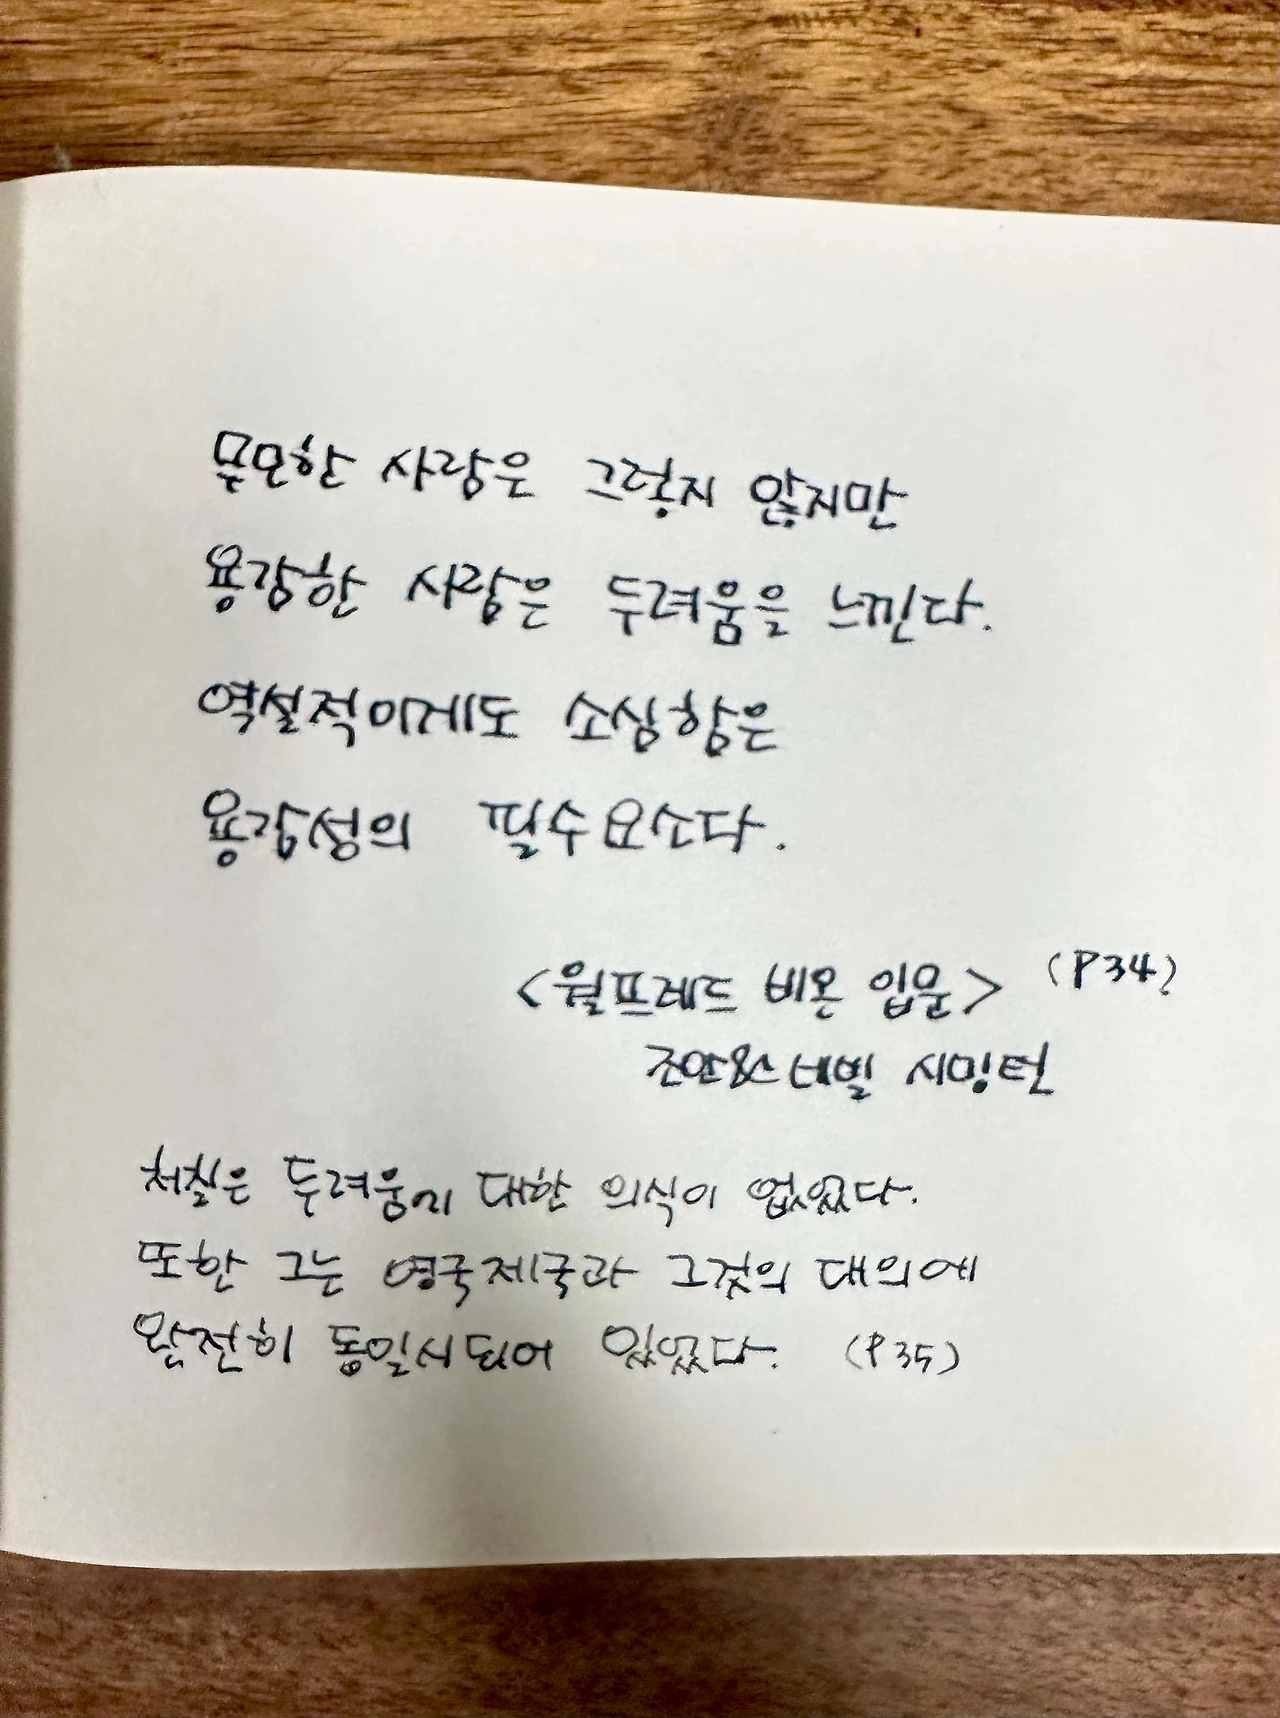 무모한 사람은 그렇지 않지만
용감한 사람은 두려움을 느낀다.
역설적이게도 소심함은
용감성의 필수요소다.
<윌프레드 비온 입문> (P34)
조안&네빌 시밍턴
처칠은 두려움에 대한 의식이 없었다.
또한 그는 영국제국과 그것의 대의에
완전히 동일시되어 있었다. (P35)